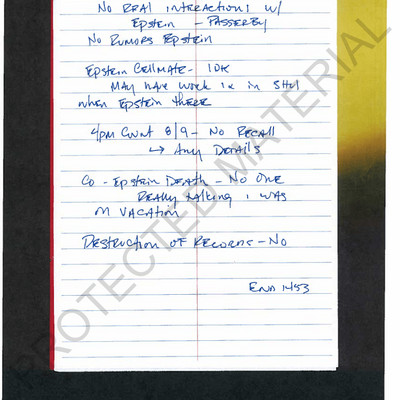 No REAL INTERACTIONS W/
EPSTEIN - PASSERBY
No RUMORS EPSTEIN
EPSTEIN CELLMATE - IDK
MAY HAVE WORK 1x IN SHU
WHEN EPSTEIN THERE
4PM COUNT 8/9 - No RECALL
↳ ANY DETAILS
CO - EPSTEIN DEATH - NO ONE
REALLY TALKING, I WAS
ON VACATION
DESTRUCTION OF RECORDS - NO
END 1453
PROTECTED MATERIAL